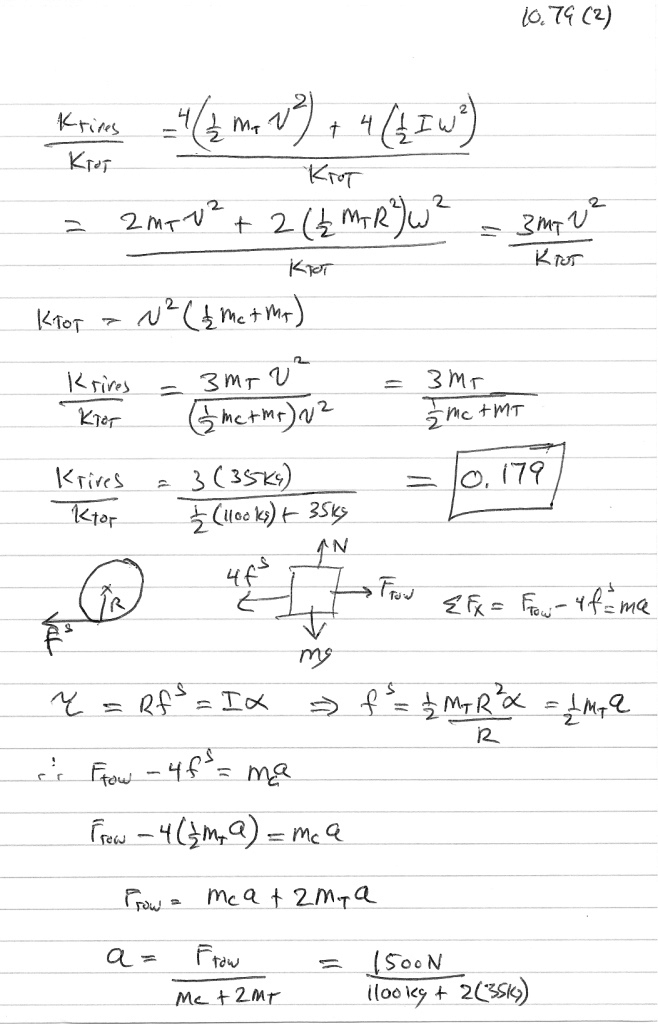 10.79 (2)
K tires / K TOT = 4(1/2 m_T v²) + 4(1/2 I w²) / K TOT
= 2 m_T v² + 2(1/2 m_T R²)w² / K TOT = 3 m_T v² / K TOT
K TOT = v²(1/2 m_c + m_T)
K tires / K TOT = 3 m_T v² / (1/2 m_c + m_T) v² = 3 m_T / 1/2 m_c + m_T
K tires / K TOT = 3(35kg) / 1/2 (1100 kg) + 35kg = 0.179
R
f^s
4f^s
N
F Tow
mg
Σ F_x = F Tow - 4f^s = ma
τ = Rf^s = Iα ⇒ f^s = 1/2 m_T R² α / R = 1/2 m_T a
∴ F Tow - 4f^s = m_c a
F Tow - 4(1/2 m_T a) = m_c a
F Tow = m_c a + 2 m_T a
a = F Tow / m_c + 2 m_T = 1500 N / 1100 kg + 2(35kg)